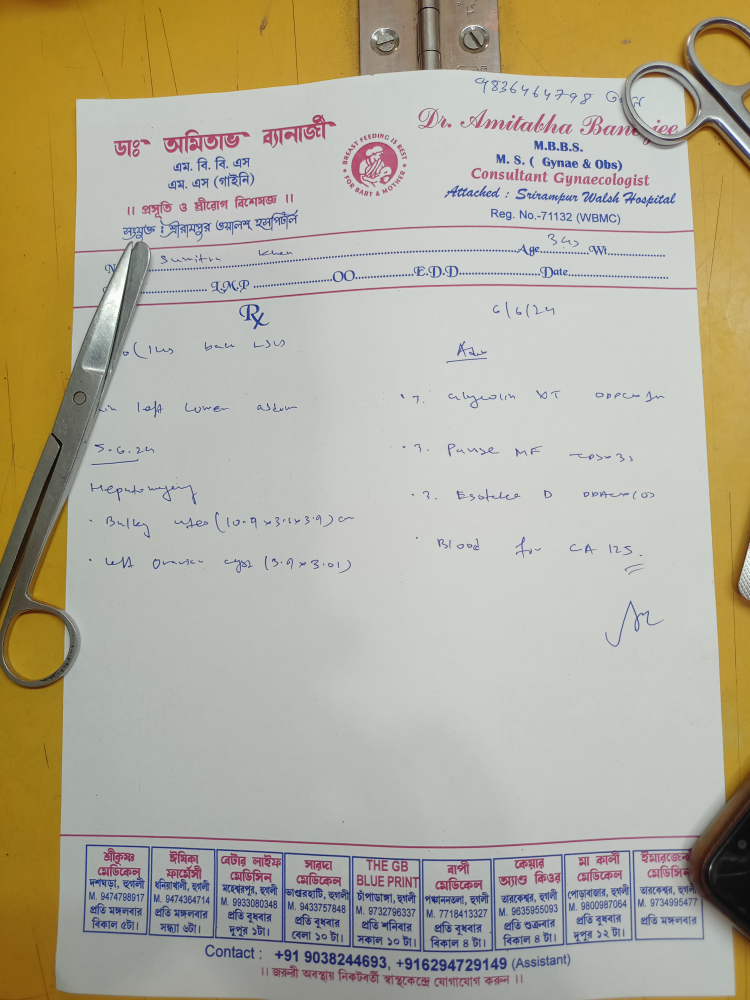 9836464798
ডাঃ অমিতাভ ব্যানার্জী
এম. বি. বি. এস
এম. এস (গাইনি)
।। প্রসূতি ও স্ত্রীরোগ বিশেষজ্ঞ ।।
সংযুক্ত : শ্রীরামপুর ওয়ালশ হসপিটাল
BREAST FEEDING IS BEST
FOR BABY & MOTHER
Dr. Amitabha Banerjee
M.B.B.S.
M. S. ( Gynae & Obs)
Consultant Gynaecologist
Attached : Srirampur Walsh Hospital
Reg. No.-71132 (WBMC)
Age Wt
L.M.P OO E.D.D Date
Rx
left lower
5.6.24
Hepatomegaly
Bulky
left ovarian cyst (5.9 x 3.01)
6/6/24
Adv
Panse MF
D
Blood for CA 125.
শ্রীকৃষ্ণ মেডিকেল
দশঘড়া, হুগলী
M. 9474798917
প্রতি মঙ্গলবার
বিকাল ৫টা।
ঈষিকা ফার্মেসী
ধনিয়াখালী, হুগলী
M. 9474364714
প্রতি মঙ্গলবার
সন্ধ্যা ৬টা।
বেটার লাইফ মেডিসিন
মহেশ্বরপুর, হুগলী
M. 9933080348
প্রতি বুধবার
দুপুর ১টা।
সারদা মেডিকেল
ভাণ্ডারহাটি, হুগলী
M. 9433757848
প্রতি বুধবার
বেলা ১০ টা।
THE GB BLUE PRINT
চাঁপাডাঙ্গা, হুগলী
M. 9732796337
প্রতি শনিবার
সকাল ১০ টা।
বাপী মেডিকেল
পঞ্চাননতলা, হুগলী
M. 7718413327
প্রতি বুধবার
বিকাল ৪ টা।
কেয়ার অ্যাণ্ড কিওর
তারকেশ্বর, হুগলী
M. 9635955093
প্রতি শুক্রবার
বিকাল ৪ টা।
মা কালী মেডিকেল
পোড়াবাজার, হুগলী
M. 9800987064
প্রতি বুধবার
দুপুর ১২ টা।
মেডিসিন
তারকেশ্বর, হুগলী
M. 9734995477
প্রতি মঙ্গলবার
Contact : +91 9038244693, +916294729149 (Assistant)
।। জরুরী অবস্থায় নিকটবর্তী স্বাস্থকেন্দ্রে যোগাযোগ করুন ।।